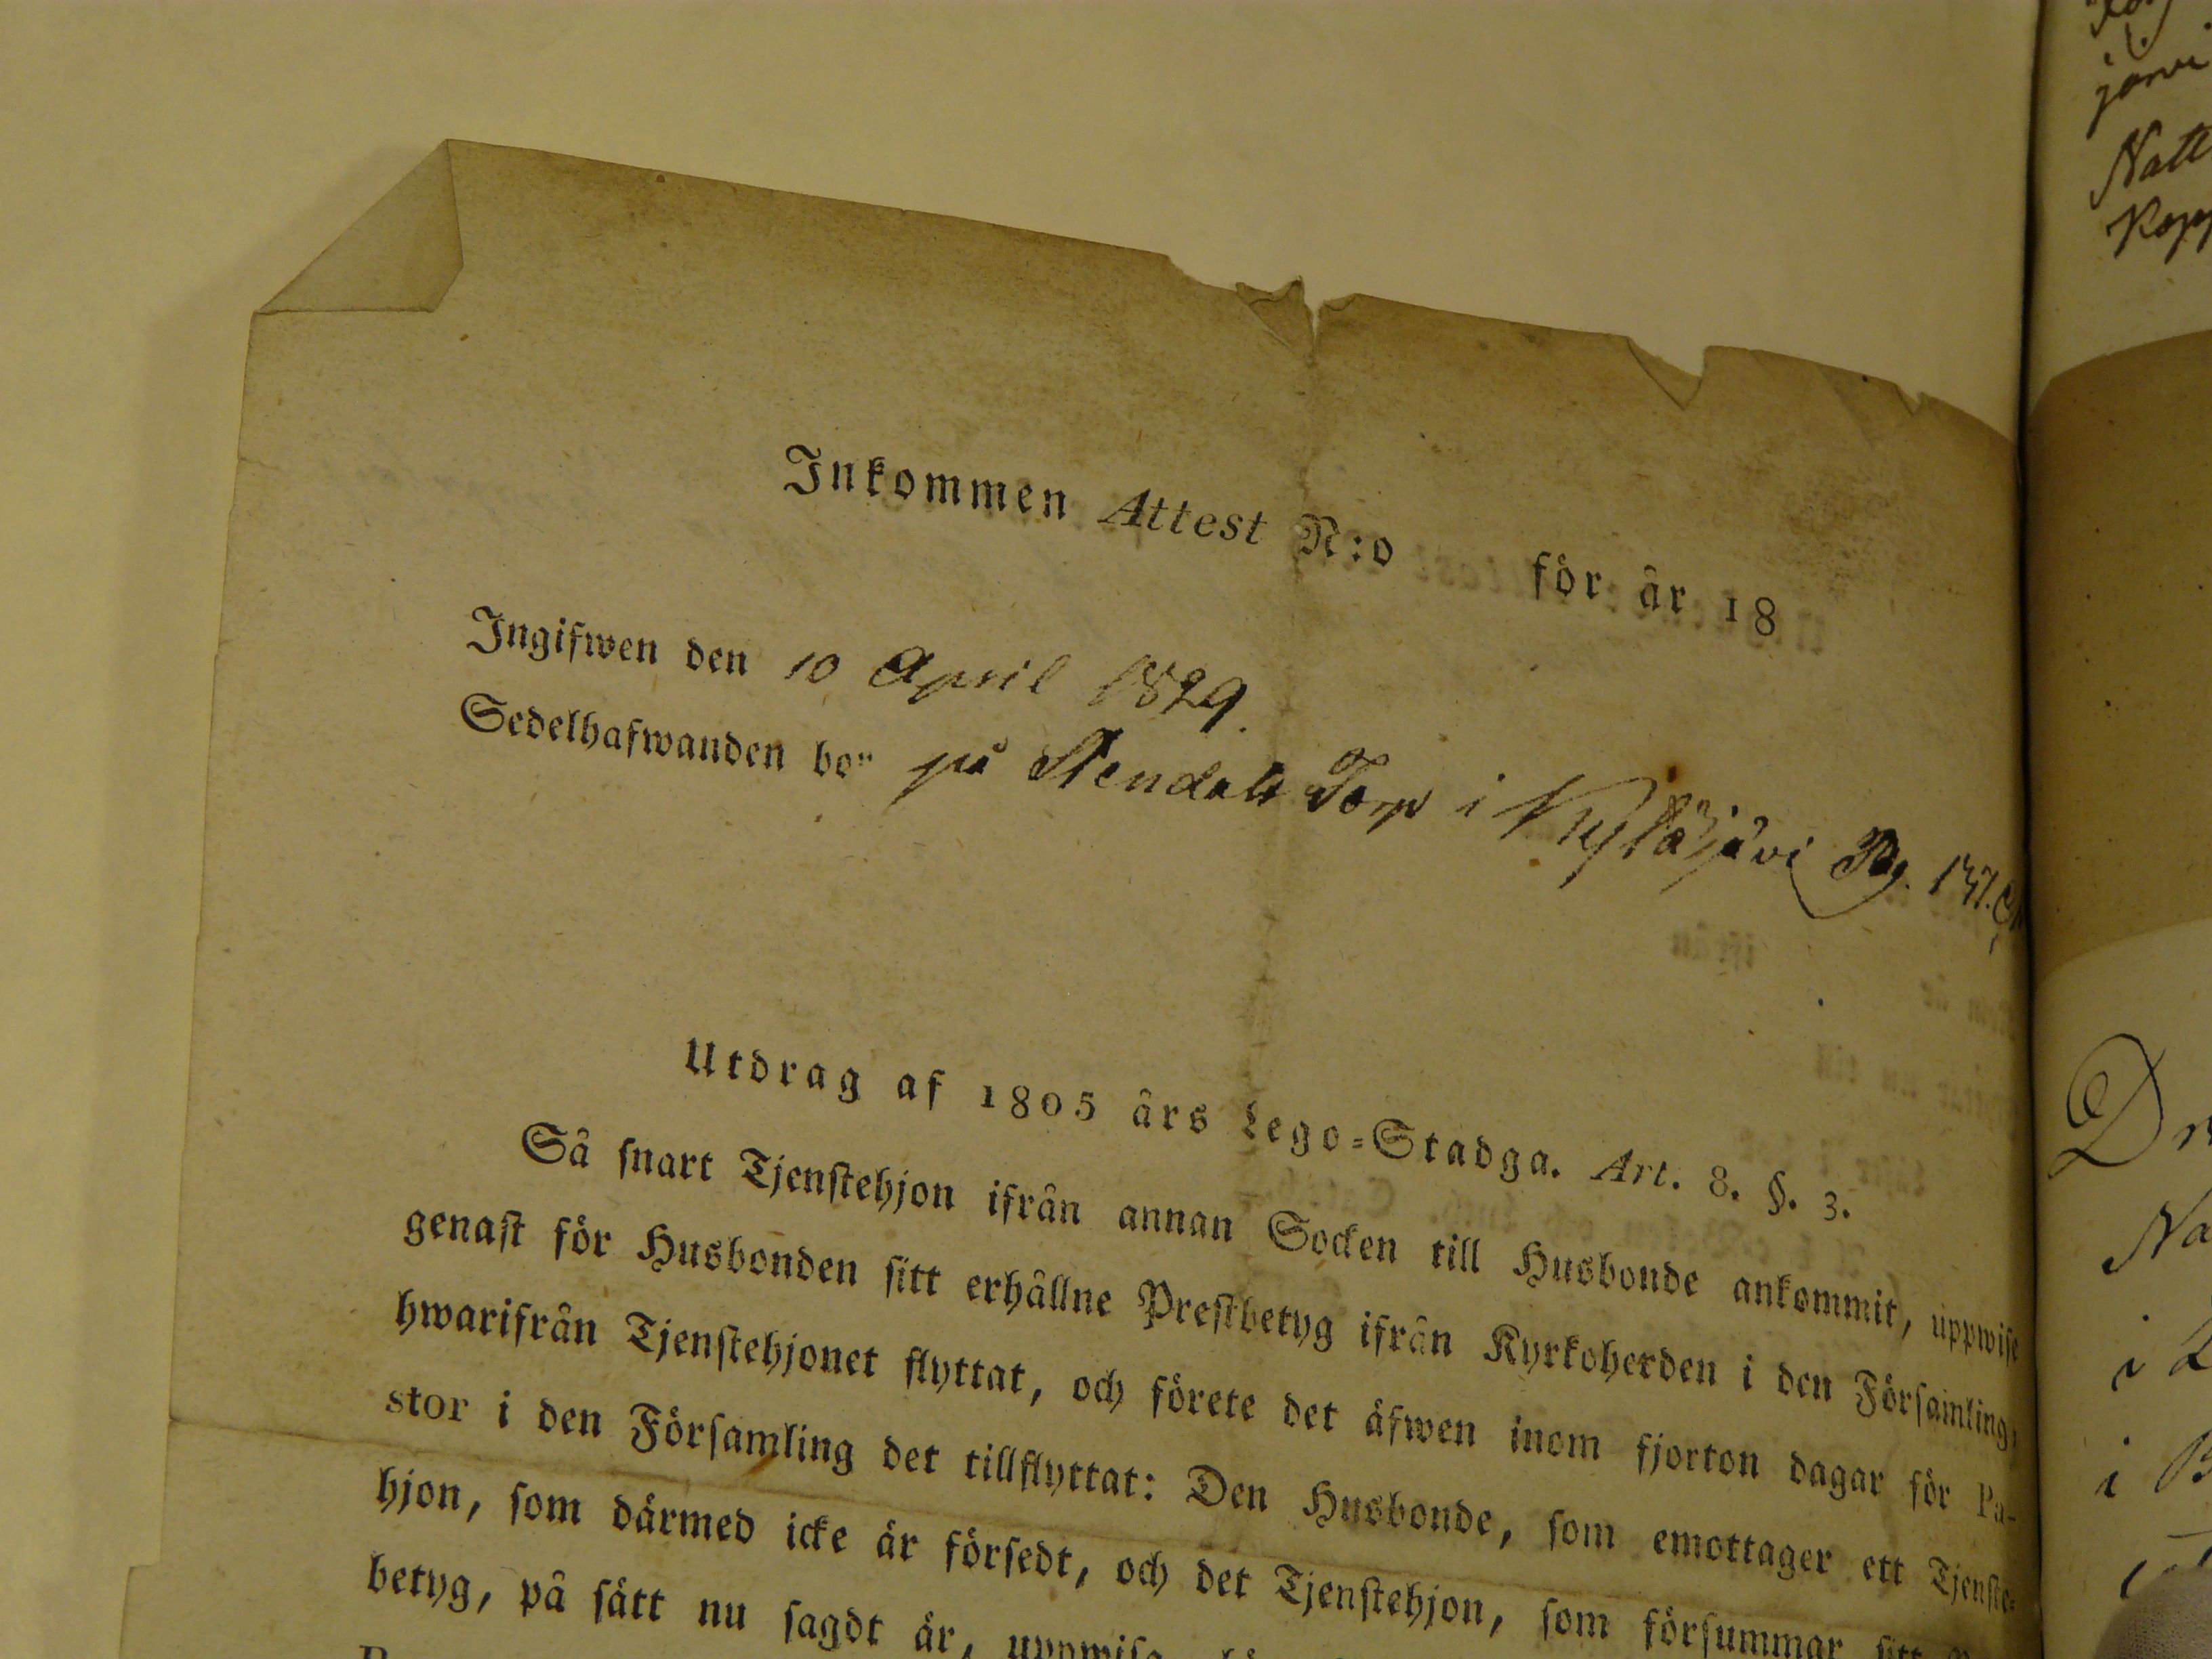 Inkommen Attest N:o för år 18
Ingifwen den 10 April 1829.
Sedelhafwanden bor på Stendals Torp i Nystäjärvi Pag. 137.
Utdrag af 1805 års Lego-Stadga. Art. 8. §. 3.
Så snart Tjenstehjon ifrån annan Socken till Husbonde ankommit, uppwise
genast för Husbonden sitt erhållne Prestbetyg ifrån Kyrkoherden i den Församling,
hwarifrån Tjenstehjonet flyttat, och förete det äfwen inom fjorton dagar för Pa-
stor i den Församling det tillflyttat: Den Husbonde, som emottager ett Tjenste-
hjon, som därmed icke är försedt, och det Tjenstehjon, som försummar sitt
betyg, på sätt nu sagdt är, uppwisa
jarvi
Natt
Kopp
Dr
Na
i
i B